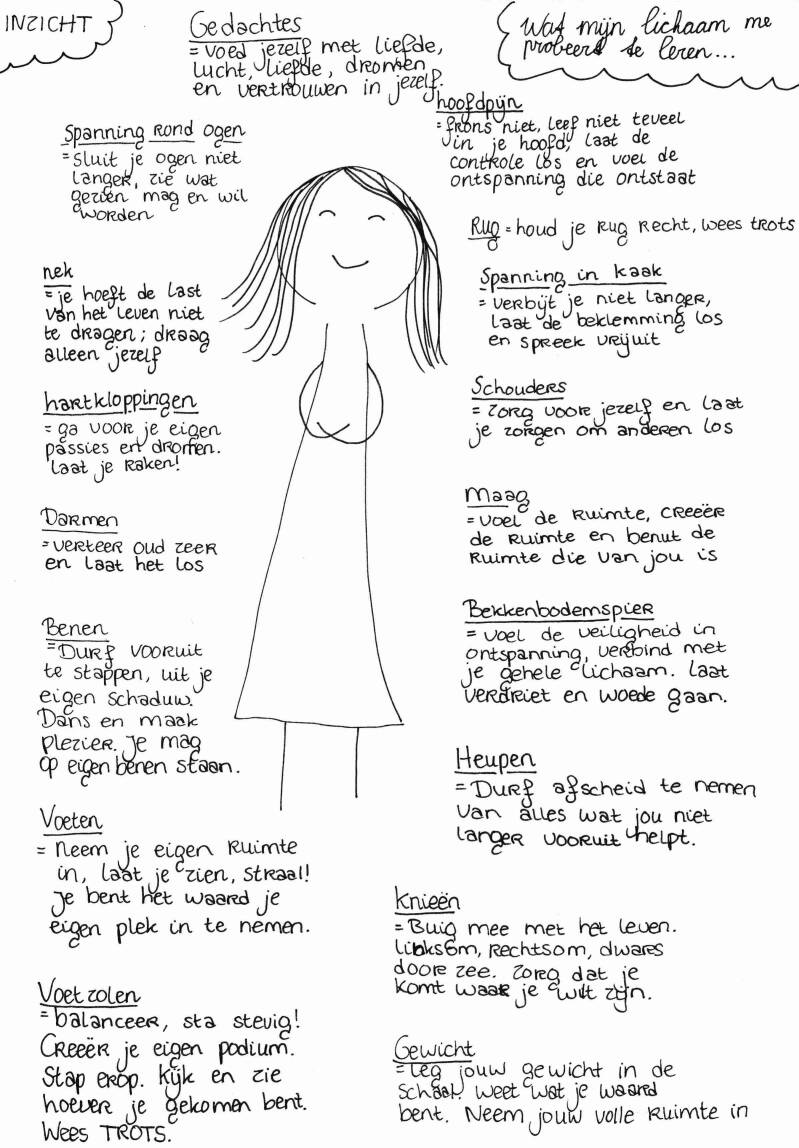 INZICHT
Wat mijn lichaam me
probeert te leren...
Gedachtes
= voed jezelf met liefde,
lucht, liefde, dromen
en vertrouwen in jezelf.
hoofdpijn
= frons niet, leef niet teveel
in je hoofd, laat de
controle los en voel de
ontspanning die ontstaat
Spanning rond ogen
= sluit je ogen niet
langer, zie wat
gezien mag en wil
worden
Rug = houd je rug recht, wees trots
nek
= je hoeft de last
van het leven niet
te dragen; draag
alleen jezelf
Spanning in kaak
= verbijt je niet langer,
laat de beklemming los
en spreek vrijuit
hartkloppingen
= ga voor je eigen
passies en dromen.
laat je raken!
Schouders
= zorg voor jezelf en laat
je zorgen om anderen los
Darmen
= verteer oud zeer
en laat het los
Maag
= voel de ruimte, creëer
de ruimte en benut de
ruimte die van jou is
Benen
= Durf vooruit
te stappen, uit je
eigen schaduw.
Dans en maak
plezier. Je mag
op eigen benen staan.
Bekkenbodemspier
= voel de veiligheid in
ontspanning, verbind met
je gehele lichaam. laat
verdriet en woede gaan.
Heupen
= Durf afscheid te nemen
van alles wat jou niet
langer vooruit helpt.
Voeten
= Neem je eigen ruimte
in, laat je zien, straal!
Je bent het waard je
eigen plek in te nemen.
Knieën
= Buig mee met het leven.
linksom, rechtsom, dwars
door zee. Zorg dat je
komt waar je wilt zijn.
Voetzolen
= balanceer, sta stevig!
Creëer je eigen podium.
Stap erop. Kijk en zie
hoever je gekomen bent.
Wees TROTS.
Gewicht
= Leg jouw gewicht in de
schaal. weet wat je waard
bent. Neem jouw volle ruimte in